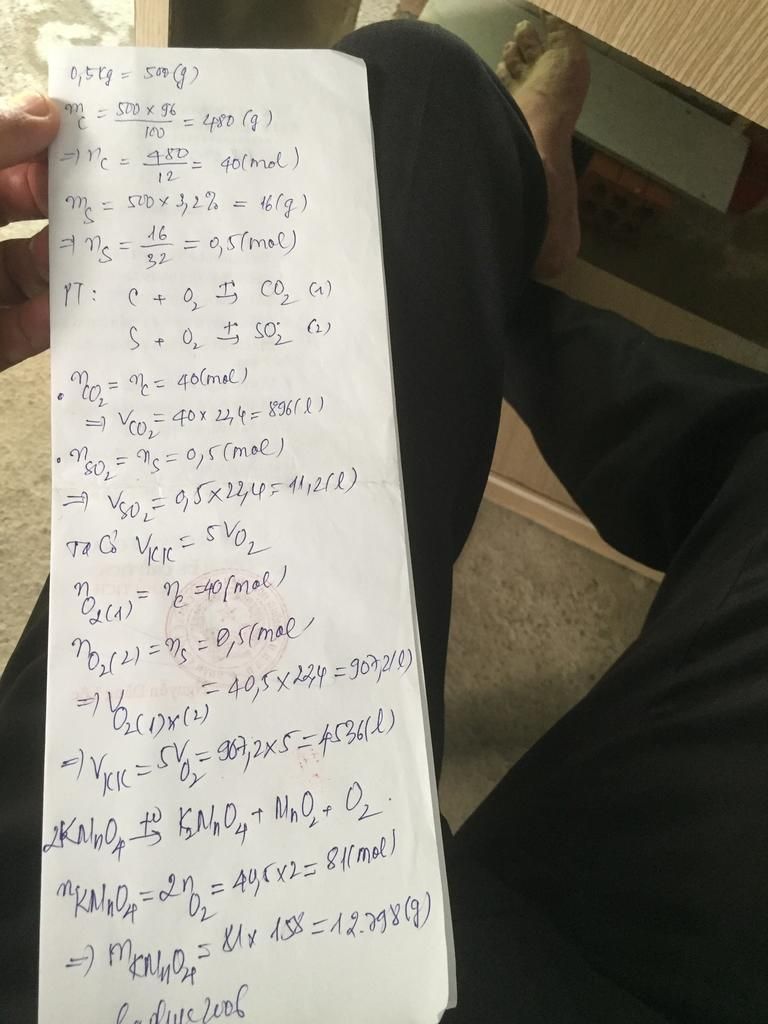 0,5kg = 500(g)
m_C = 500 x 96 / 100 = 480 (g)
=> n_C = 480 / 12 = 40(mol)
m_S = 500 x 3,2% = 16(g)
=> n_S = 16 / 32 = 0,5(mol)
PT: C + O2 t→ CO2 (1)
S + O2 t→ SO2 (2)
• n_CO2 = n_C = 40(mol)
=> V_CO2 = 40 x 22,4 = 896(l)
• n_SO2 = n_S = 0,5(mol)
=> V_SO2 = 0,5 x 22,4 = 11,2(l)
Ta có V_KK = 5V_O2
n_O2(1) = n_C = 40(mol)
n_O2(2) = n_S = 0,5(mol)
=> V_O2(1)x(2) = 40,5 x 22,4 = 907,2(l)
=> V_KK = 5V_O2 = 907,2 x 5 = 4536(l)
2KMnO4 t⁰→ K2MnO4 + MnO2 + O2.
n_KMnO4 = 2n_O2 = 40,5 x 2 = 81(mol)
=> m_KMnO4 = 81 x 158 = 12.798(g)